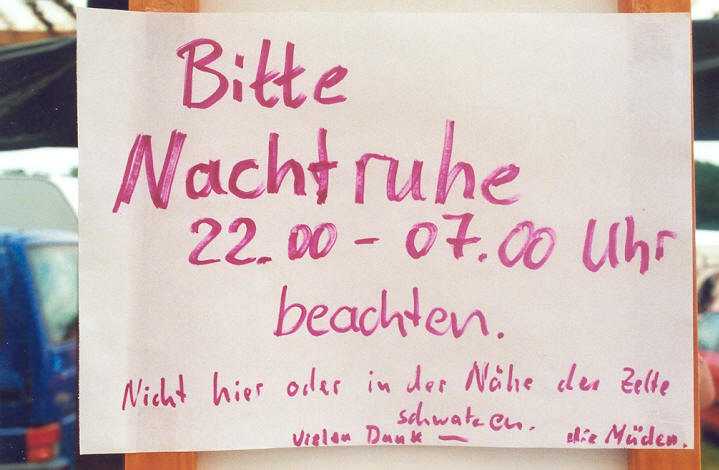 Bitte
Nachtruhe
22.00 - 07.00 Uhr
beachten.
Nicht hier oder in der Nähe der Zelte
schwatzen.
Vielen Dank — die Müden.